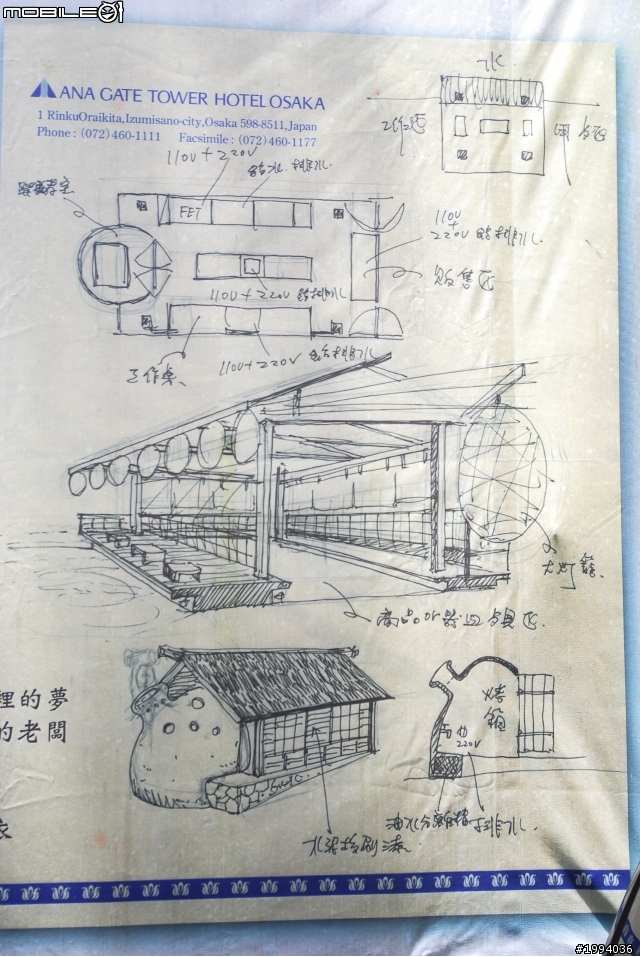 mobile01
ANA GATE TOWER HOTEL OSAKA
1 RinkuOraikita,Izumisano-city,Osaka 598-8511,Japan
Phone : (072) 460-1111 Facsimile : (072) 460-1177
水
工作區
110V+220V
給水.排水.
FET
110V
+
220V 給排水.
販售區
110V+220V 給排水
工作桌、
110V+220V 給排水.
大灯籠.
商品or器皿与具區.
裡的夢
的老闆
烤
箱
220V
油水分離槽+排水.
#1994036